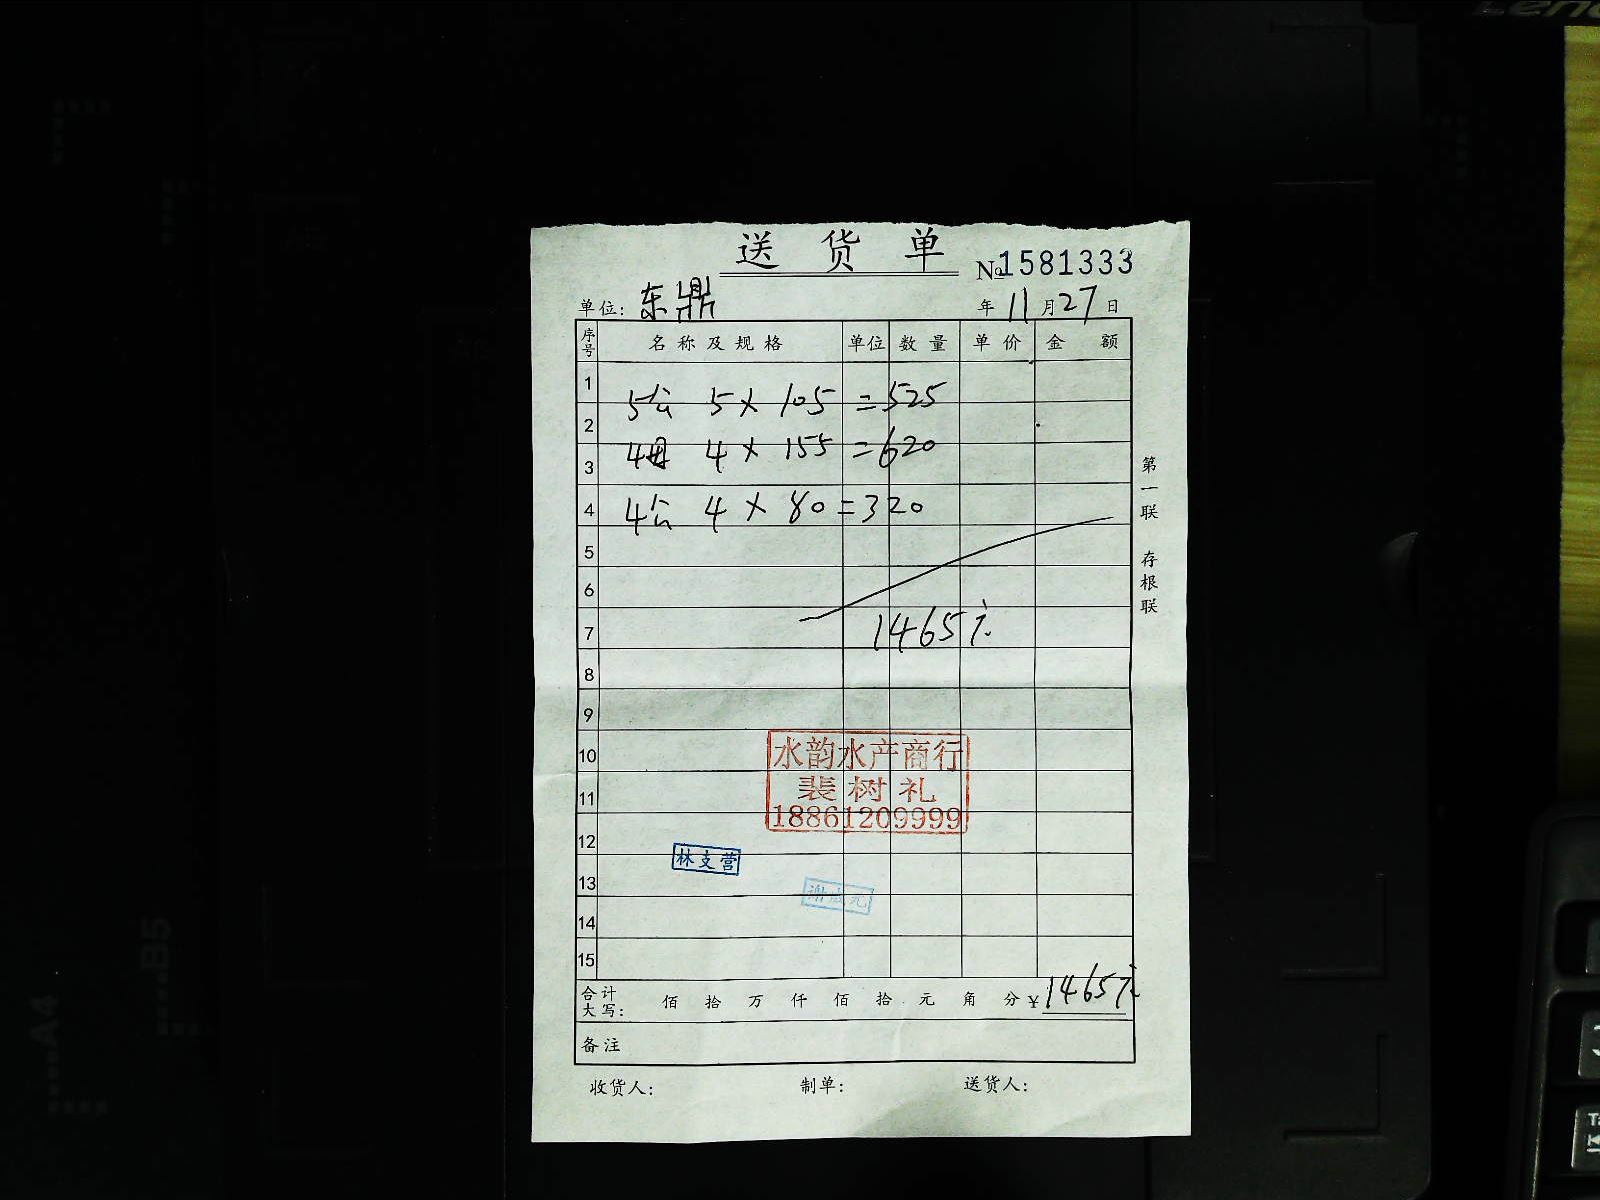 送 货 单
№1581333
单位: 东鼎
年 11 月 27 日
序号 名称及规格 单位 数量 单价 金额
1
5公 5 × 105 = 525
2
4母 4 × 155 = 620
3
4 4公 4 × 80 = 320
5
6
7 1465元
8
9
10
11
12
13
14
15
水韵水产商行
裴树礼
18861209999
林支营
合计大写: 佰 拾 万 仟 佰 拾 元 角 分 ¥ 1465元
备注
收货人: 制单: 送货人:
第一联 存根联
A4
B5